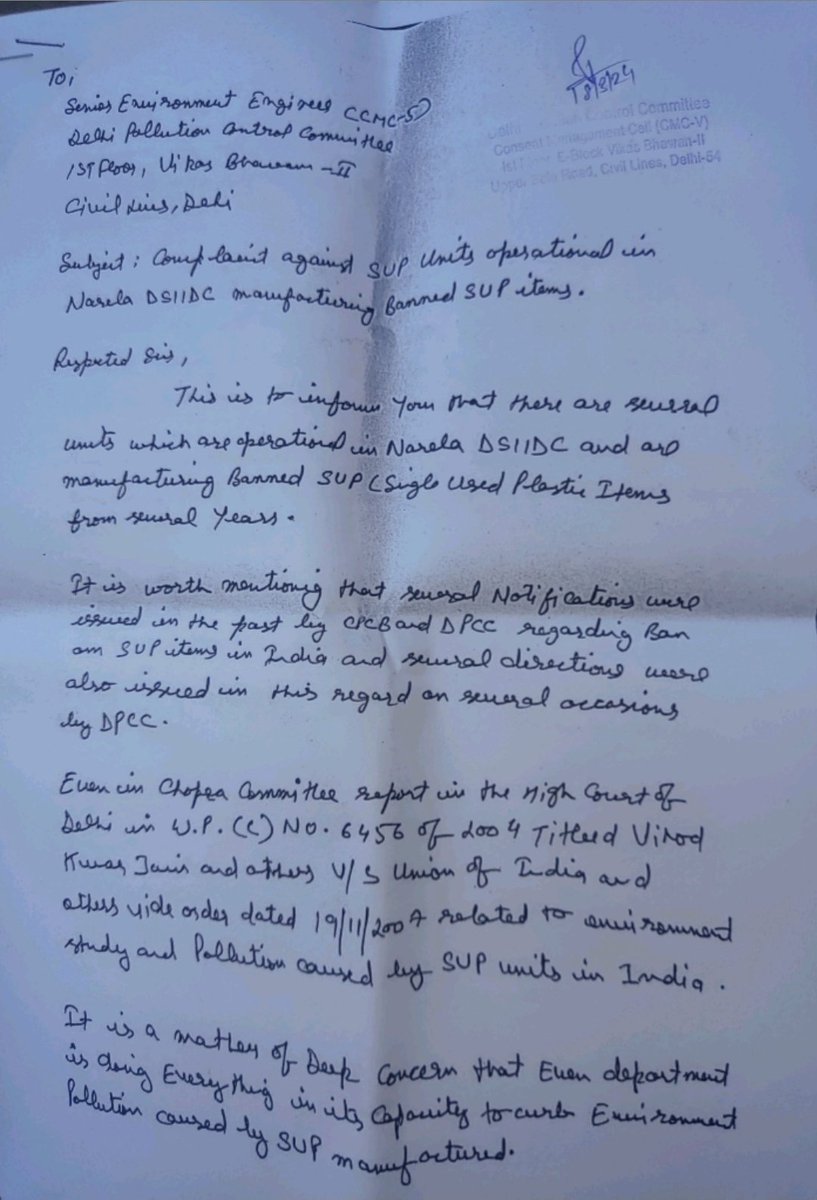 To,
Senior Environment Engineer (CMC-5)
Delhi Pollution Control Committee
1st Floor, Vikas Bhawan-II
Civil Lines, Delhi
18/3/24
Control Committee
Consent Management Cell (CMC-V)
Ist Floor E-Block Vikas Bhawan-II
Upper Bela Road, Civil Lines, Delhi-54
Subject: Complaint against SUP Units operational in
Narela DSIIDC manufacturing Banned SUP items.
Respected Sir,
This is to inform you that there are several
units which are operational in Narela DSIIDC and are
manufacturing Banned SUP (Single Used Plastic Items
from several Years.
It is worth mentionig that several Notifications were
issued in the past by CPCB and DPCC regarding Ban
on SUP items in India and several directions were
also issued in this regard on several occasions
by DPCC.
Even in Chopra Committee report in the High Court of
Delhi in W.P.(C) NO. 6456 of 2004 Titled Vinod
Kumar Jain and others V/S Union of India and
others vide order dated 19/11/2007 related to environment
study and Pollution caused by SUP units in India.
It is a matter of Deep Concern that Even department
is doing Everythig in its Capacity to curb Environment
Pollution caused by SUP manufactured.